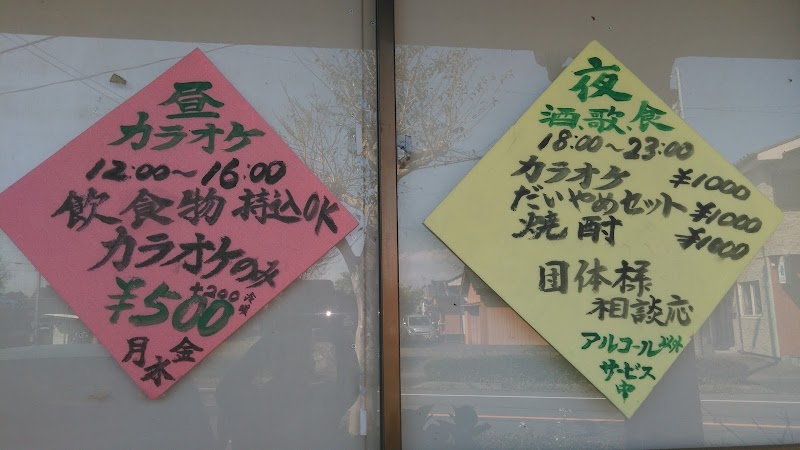 昼
カラオケ
12:00～16:00
飲食物持込OK
カラオケのみ
+200冷暖
¥500
月水金
夜
酒、歌、食
18:00～23:00
カラオケ ¥1000
だいやめセット ¥1000
焼酎 ¥1000
団体様
相談応
アルコール以外
サービス
中